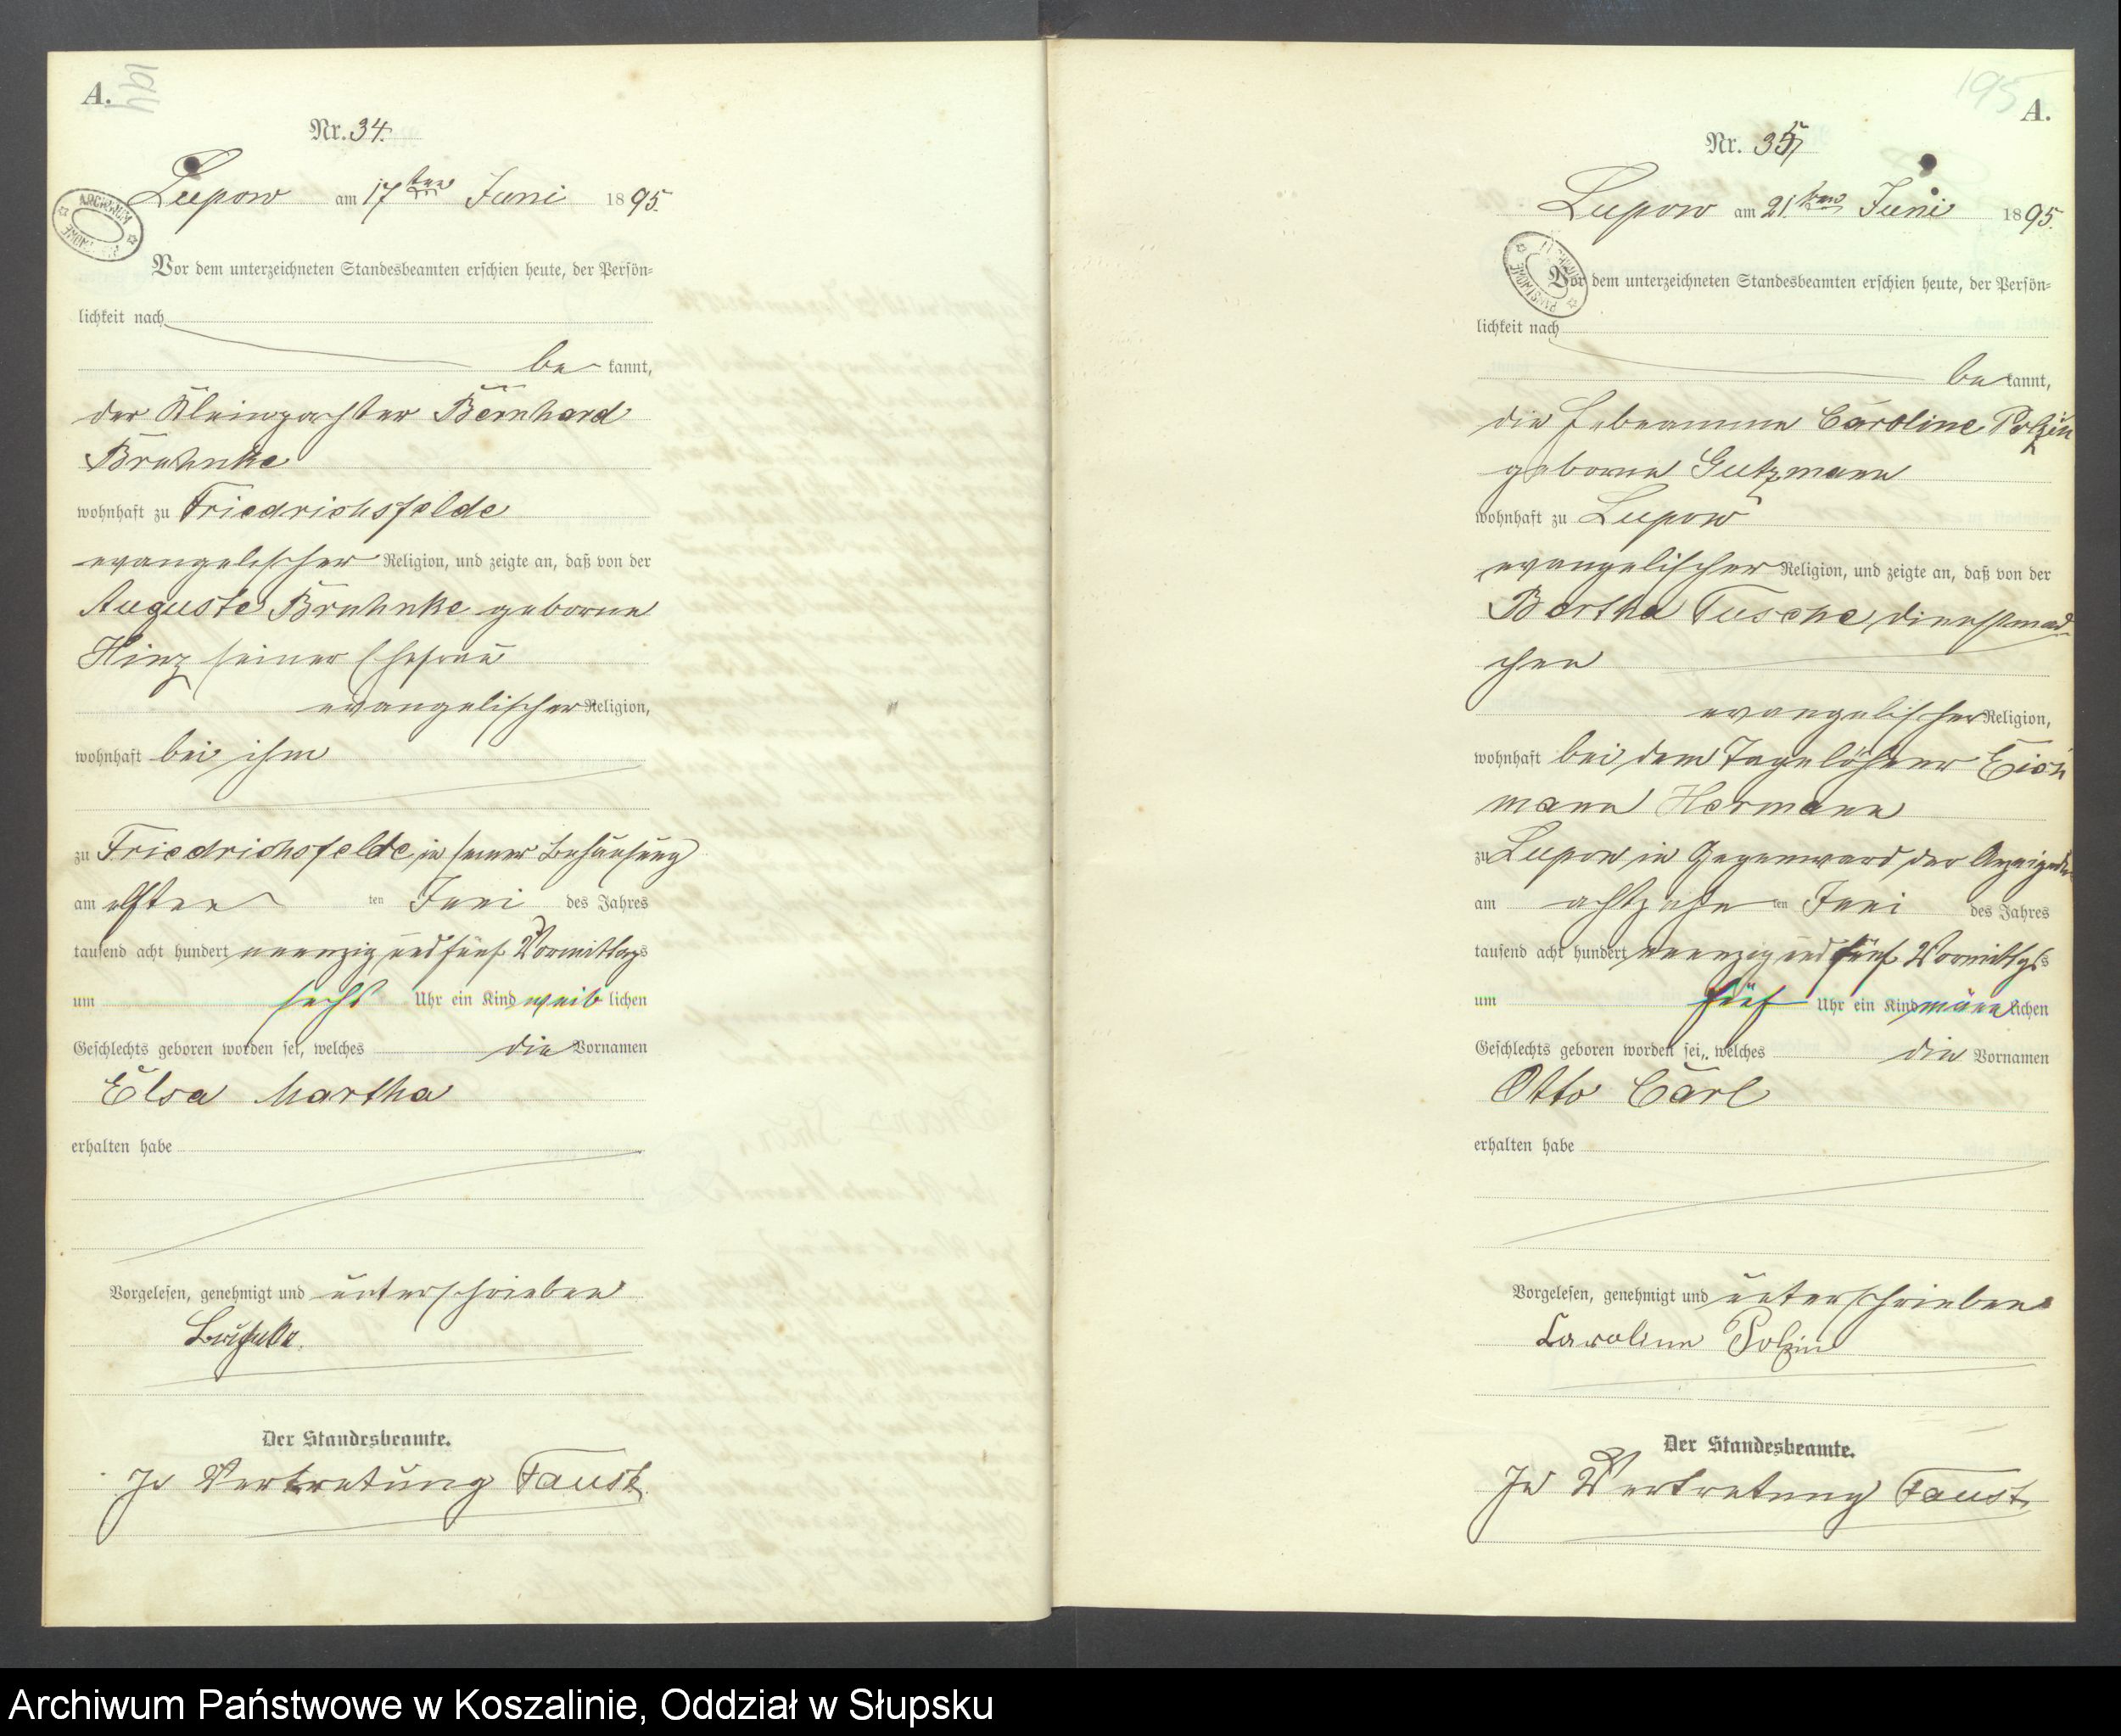 A.
194
Nr. 34.
Lupow am 17ten Juni 1895.
ARCHIWUM
Vor dem unterzeichneten Standesbeamten erschien heute, der Persön=
lichkeit nach
be kannt,
der Kleinpächter Bernhard
Bruhnke
wohnhaft zu Friedrichsfelde
evangelischer Religion, und zeigte an, daß von der
Auguste Bruhnke geborne
Hinz seiner Ehefrau
evangelischer Religion,
wohnhaft bei ihm
zu Friedrichsfelde in seiner Behausung
am elften ten Juni des Jahres
tausend acht hundert neunzig und fünf Vormittags
um sechs Uhr ein Kind weib lichen
Geschlechts geboren worden sei, welches die Vornamen
Elsa Martha
erhalten habe
Vorgelesen, genehmigt und unterschrieben
Bruhnke.
Der Standesbeamte.
In Vertretung Faust.
195
A.
Nr. 35
Lupow am 21.ten Juni 1895.
Vor dem unterzeichneten Standesbeamten erschien heute, der Persön=
lichkeit nach
be kannt,
die Hebeamme Caroline Polzin
geborne Gutzmann
wohnhaft zu Lupow
evangelischer Religion, und zeigte an, daß von der
Bertha Tusche, Dienstmäd-
chen
evangelischer Religion,
wohnhaft bei dem Tagelöhner Eich
mann Hermann
zu Lupow in Gegenward der Anzeigenden
am achtzehn ten Juni des Jahres
tausend acht hundert neunzig und fünf Vormittgs s
um fünf Uhr ein Kind männ lichen
Geschlechts geboren worden sei, welches die Vornamen
Otto Carl
erhalten habe
Vorgelesen, genehmigt und unterschrieben
Caroline Polzin
Der Standesbeamte.
In Vertretung Faust.
Archiwum Państwowe w Koszalinie, Oddział w Słupsku